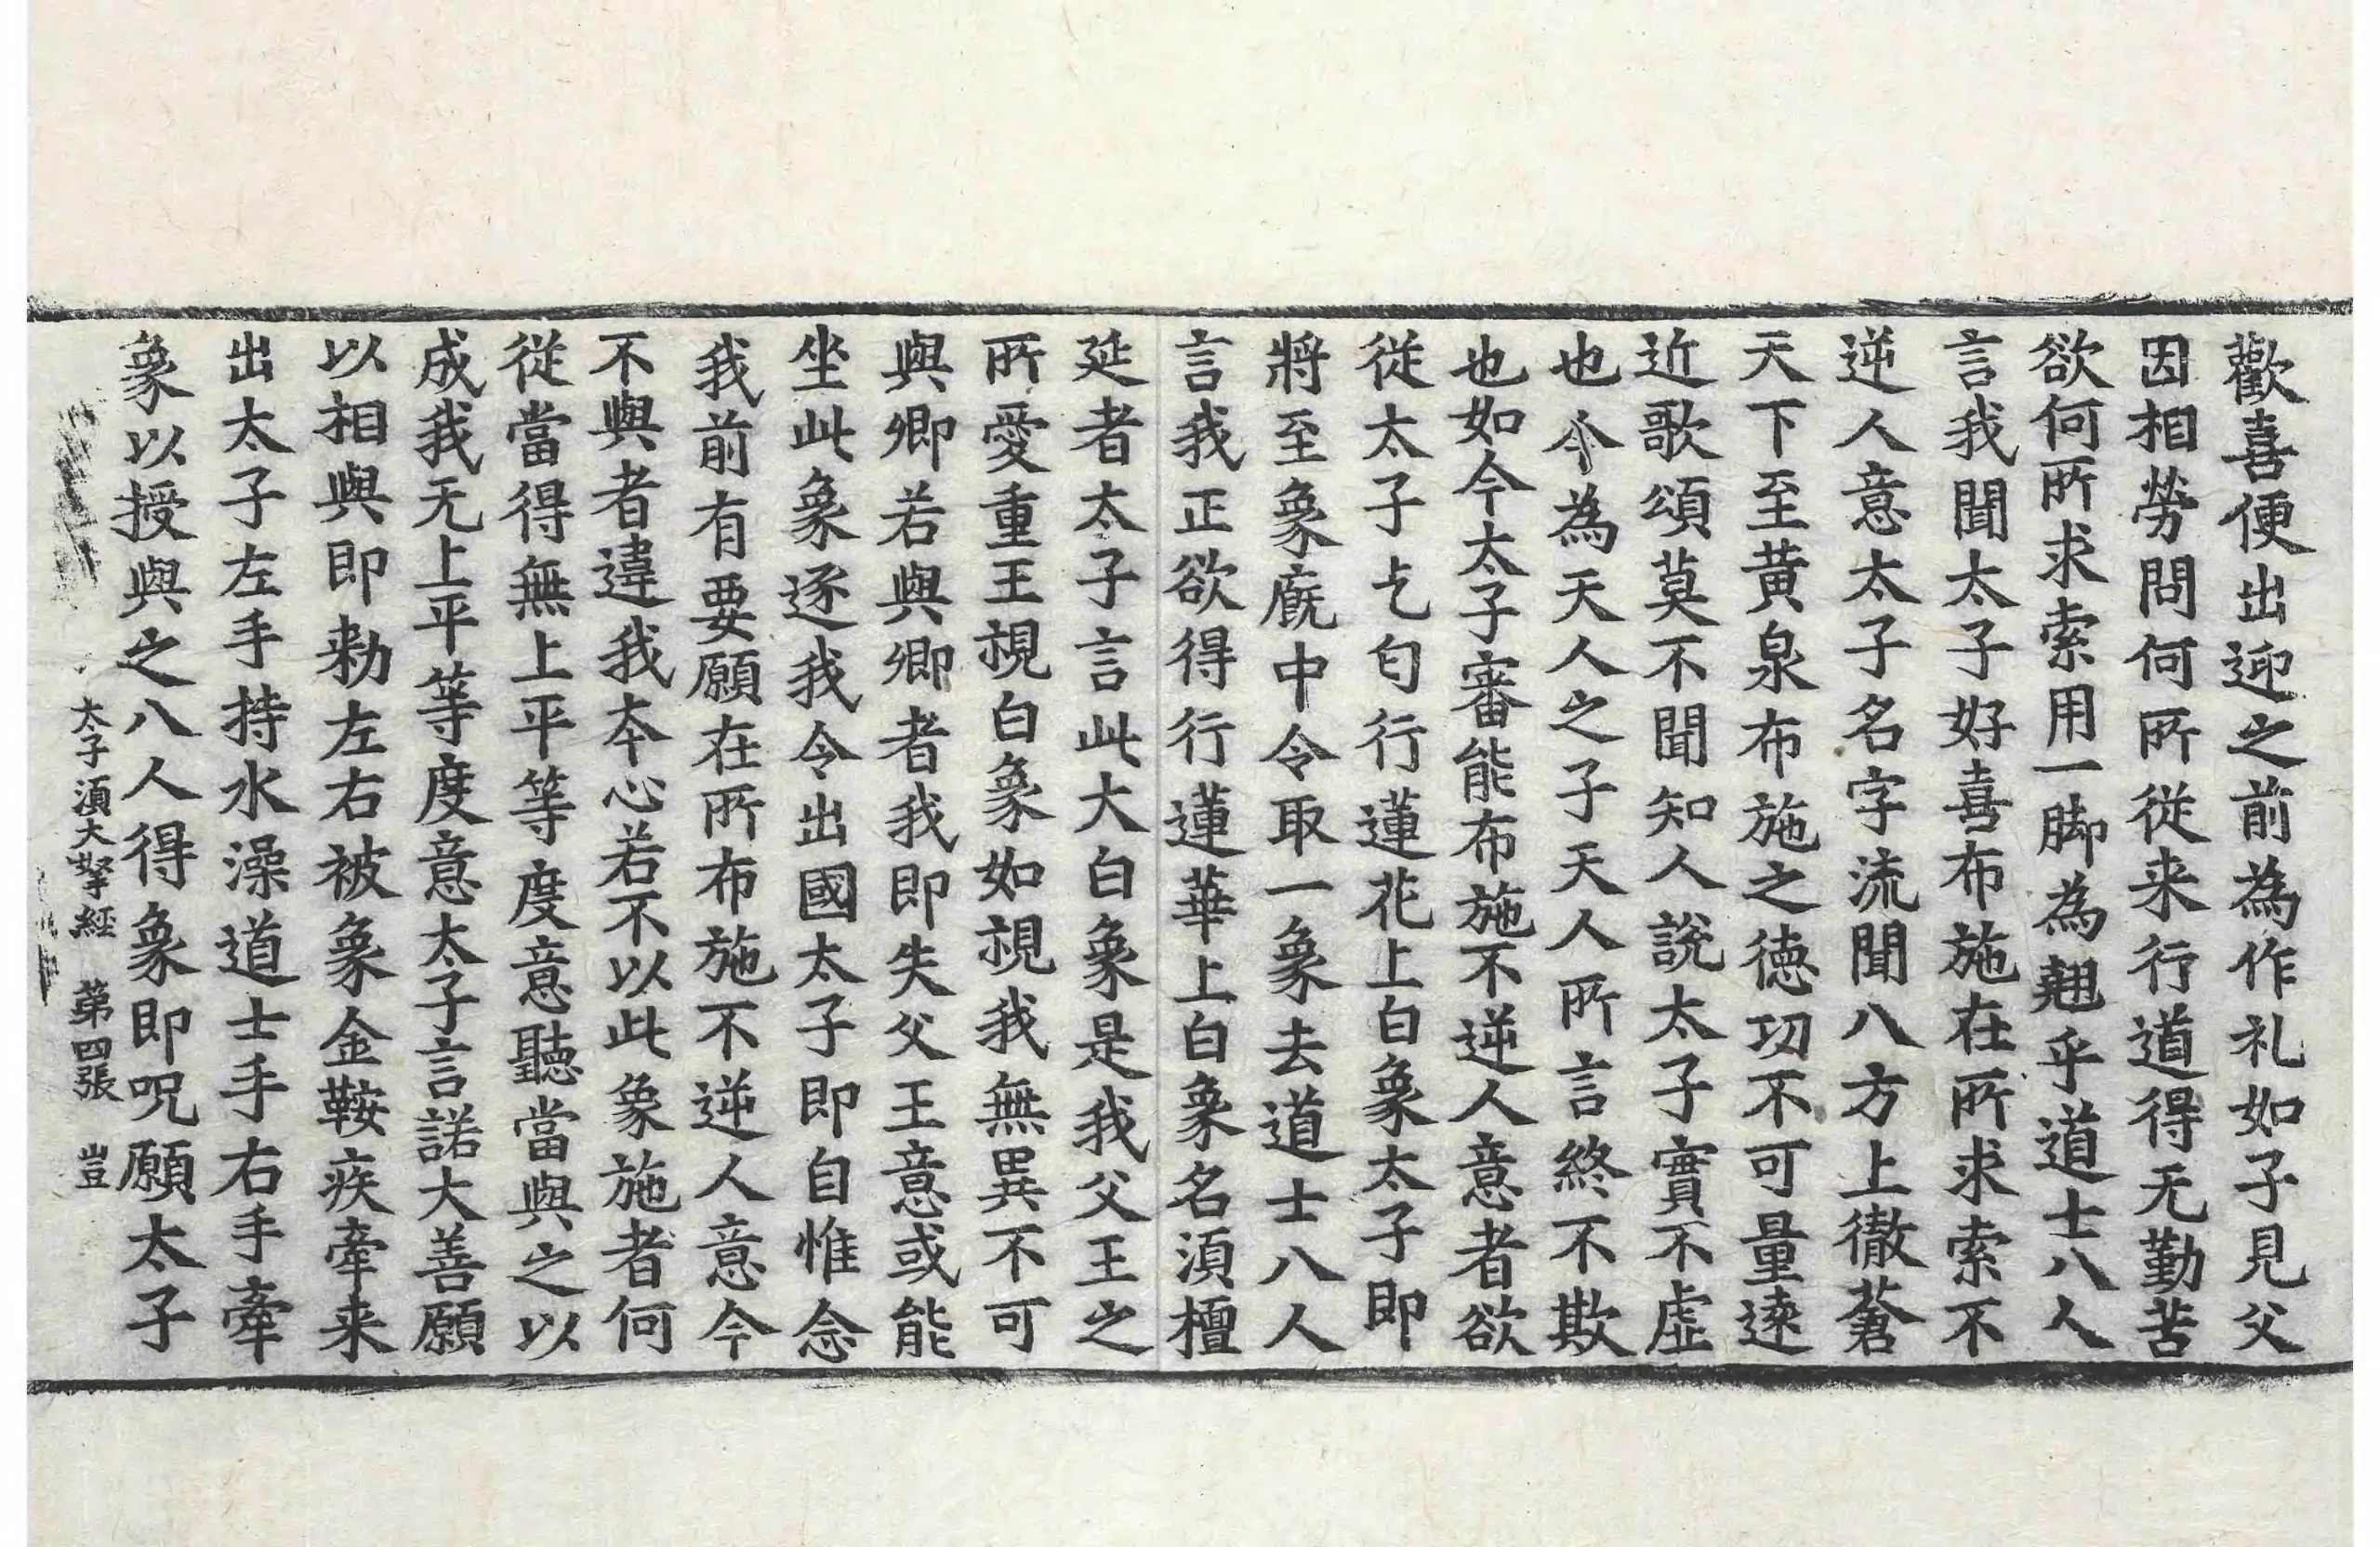 歡喜便出迎之前為作礼如子見父
因相勞問何所從来行道得无勤苦
欲何所求索用一脚為翹乎道士八人
言我聞太子好喜布施在所求索不
逆人意太子名字流聞八方上徹蒼
天下至黄泉布施之德功不可量遠
近歌頌莫不聞知人說太子實不虛
也今為天人之子天人所言終不欺
也如今太子審能布施不逆人意者欲
從太子乞匂行蓮花上白象太子即
將至象廐中令取一象去道士八人
言我正欲得行蓮華上白象名湏檀
延者太子言此大白象是我父王之
所愛重王視白象如視我無異不可
與卿若與卿者我即失父王意或能
坐此象逐我令出國太子即自惟念
我前有要願在所布施不逆人意今
不與者違我本心若不以此象施者何
從當得無上平等度意聽當與之以
成我无上平等度意太子言諾大善願
以相與即勑左右被象金鞍疾牽来
出太子左手持水澡道士手右手牽
象以授與之八人得象即呪願太子
太子湏大拏経 苐四張 豈